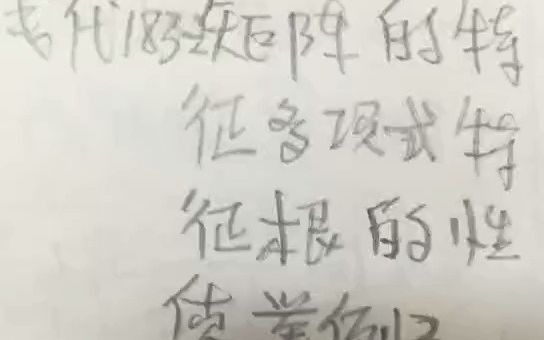 高代183:矩阵的特
征多项式特
征根的性
质举例12